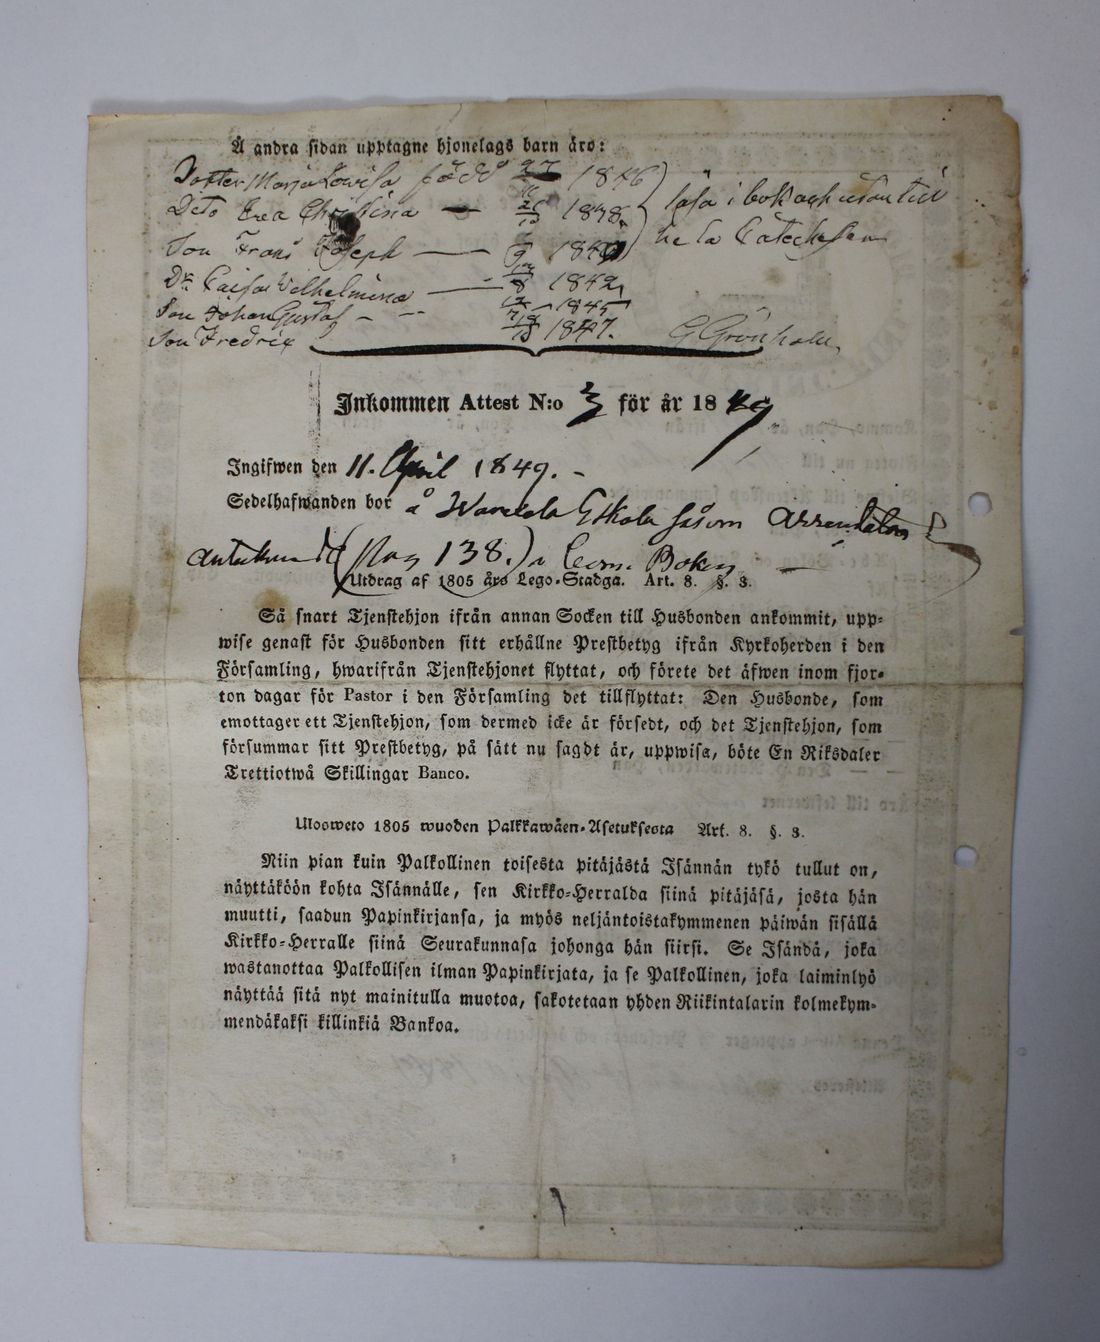 Å andra sidan upptagne hjonelags barn äro:
Dotter Maria Lowisa född 27 1846
Dito Eva Christina — 1838. läsa i bok och utan till
Son Frans Joseph — 9 184 hela Catechesen
Dr Caisa Wilhelmina — 8 1842
Son Johan Gustaf — 12 1845
Son Fredrix 1847. C Grönholm
Inkommen Attest N:o 3 för år 1849
Ingifwen den 11. April 1849. -
Sedelhafwanden bor å Skola såsom Arrendator
antecknad (Pag 138.) i Com. Boken —
Utdrag af 1805 års Lego-Stadga. Art. 8. §. 3.
Så snart Tjenstehjon ifrån annan Socken till Husbonden ankommit, upp-
wise genast för Husbonden sitt erhållne Prestbetyg ifrån Kyrkoherden i den
Församling, hwarifrån Tjenstehjonet flyttat, och förete det äfwen inom fjor-
ton dagar för Pastor i den Församling det tillflyttat: Den Husbonde, som
emottager ett Tjenstehjon, som dermed icke är försedt, och det Tjenstehjon, som
försummar sitt Prestbetyg, på sätt nu sagdt är, uppwisa, böte En Riksdaler
Trettiotwå Skillingar Banco.
Ulosweto 1805 wuoden Palkkawäen-Asetuksesta Art. 8. §. 3.
Niin pian kuin Palkollinen toisesta pitäjästä Isännän tykö tullut on,
näyttäköön kohta Isännälle, sen Kirkko-Herralda siinä pitäjäsä, josta hän
muutti, saadun Papinkirjansa, ja myös neljäntoistakymmenen päiwän sisällä
Kirkko-Herralle siinä Seurakunnasa johonga hän siirsi. Se Isändä, joka
wastanottaa Palkollisen ilman Papinkirjata, ja se Palkollinen, joka laiminlyö
näyttää sitä nyt mainitulla muotoa, sakotetaan yhden Riikintalarin kolmekym-
mendäkaksi killinkiä Bankoa.